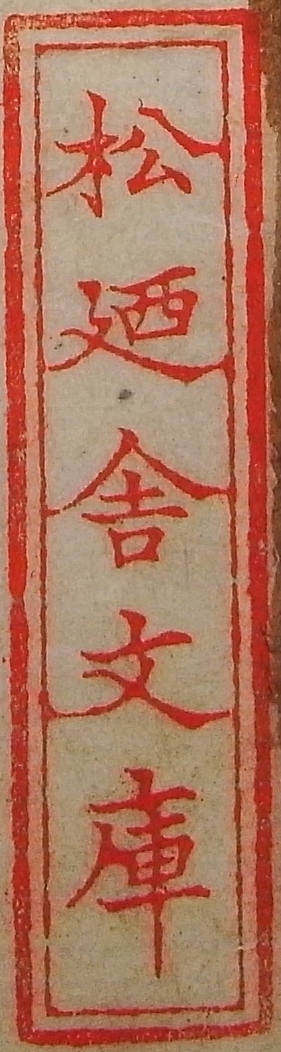 松廼舎文庫